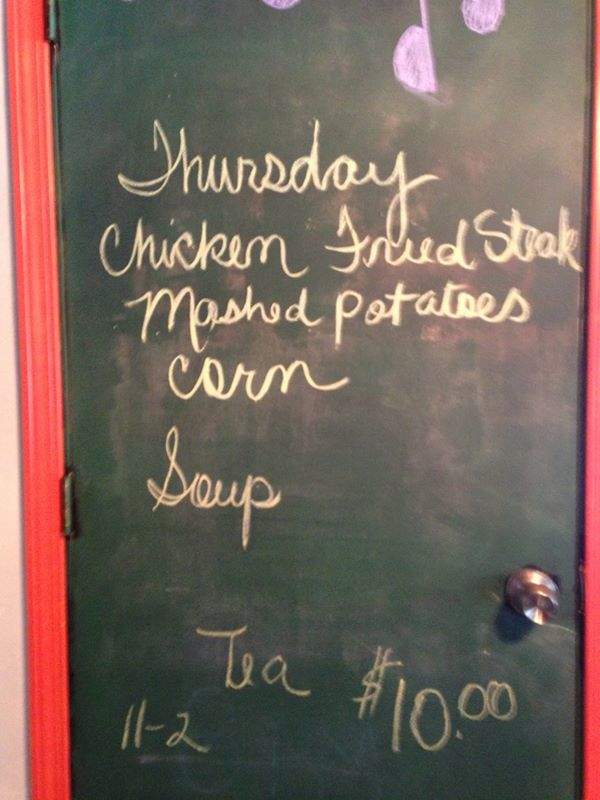 Thursday
Chicken Fried Steak
Mashed Potatoes
Corn
Soup
Tea
11-2 $10.00